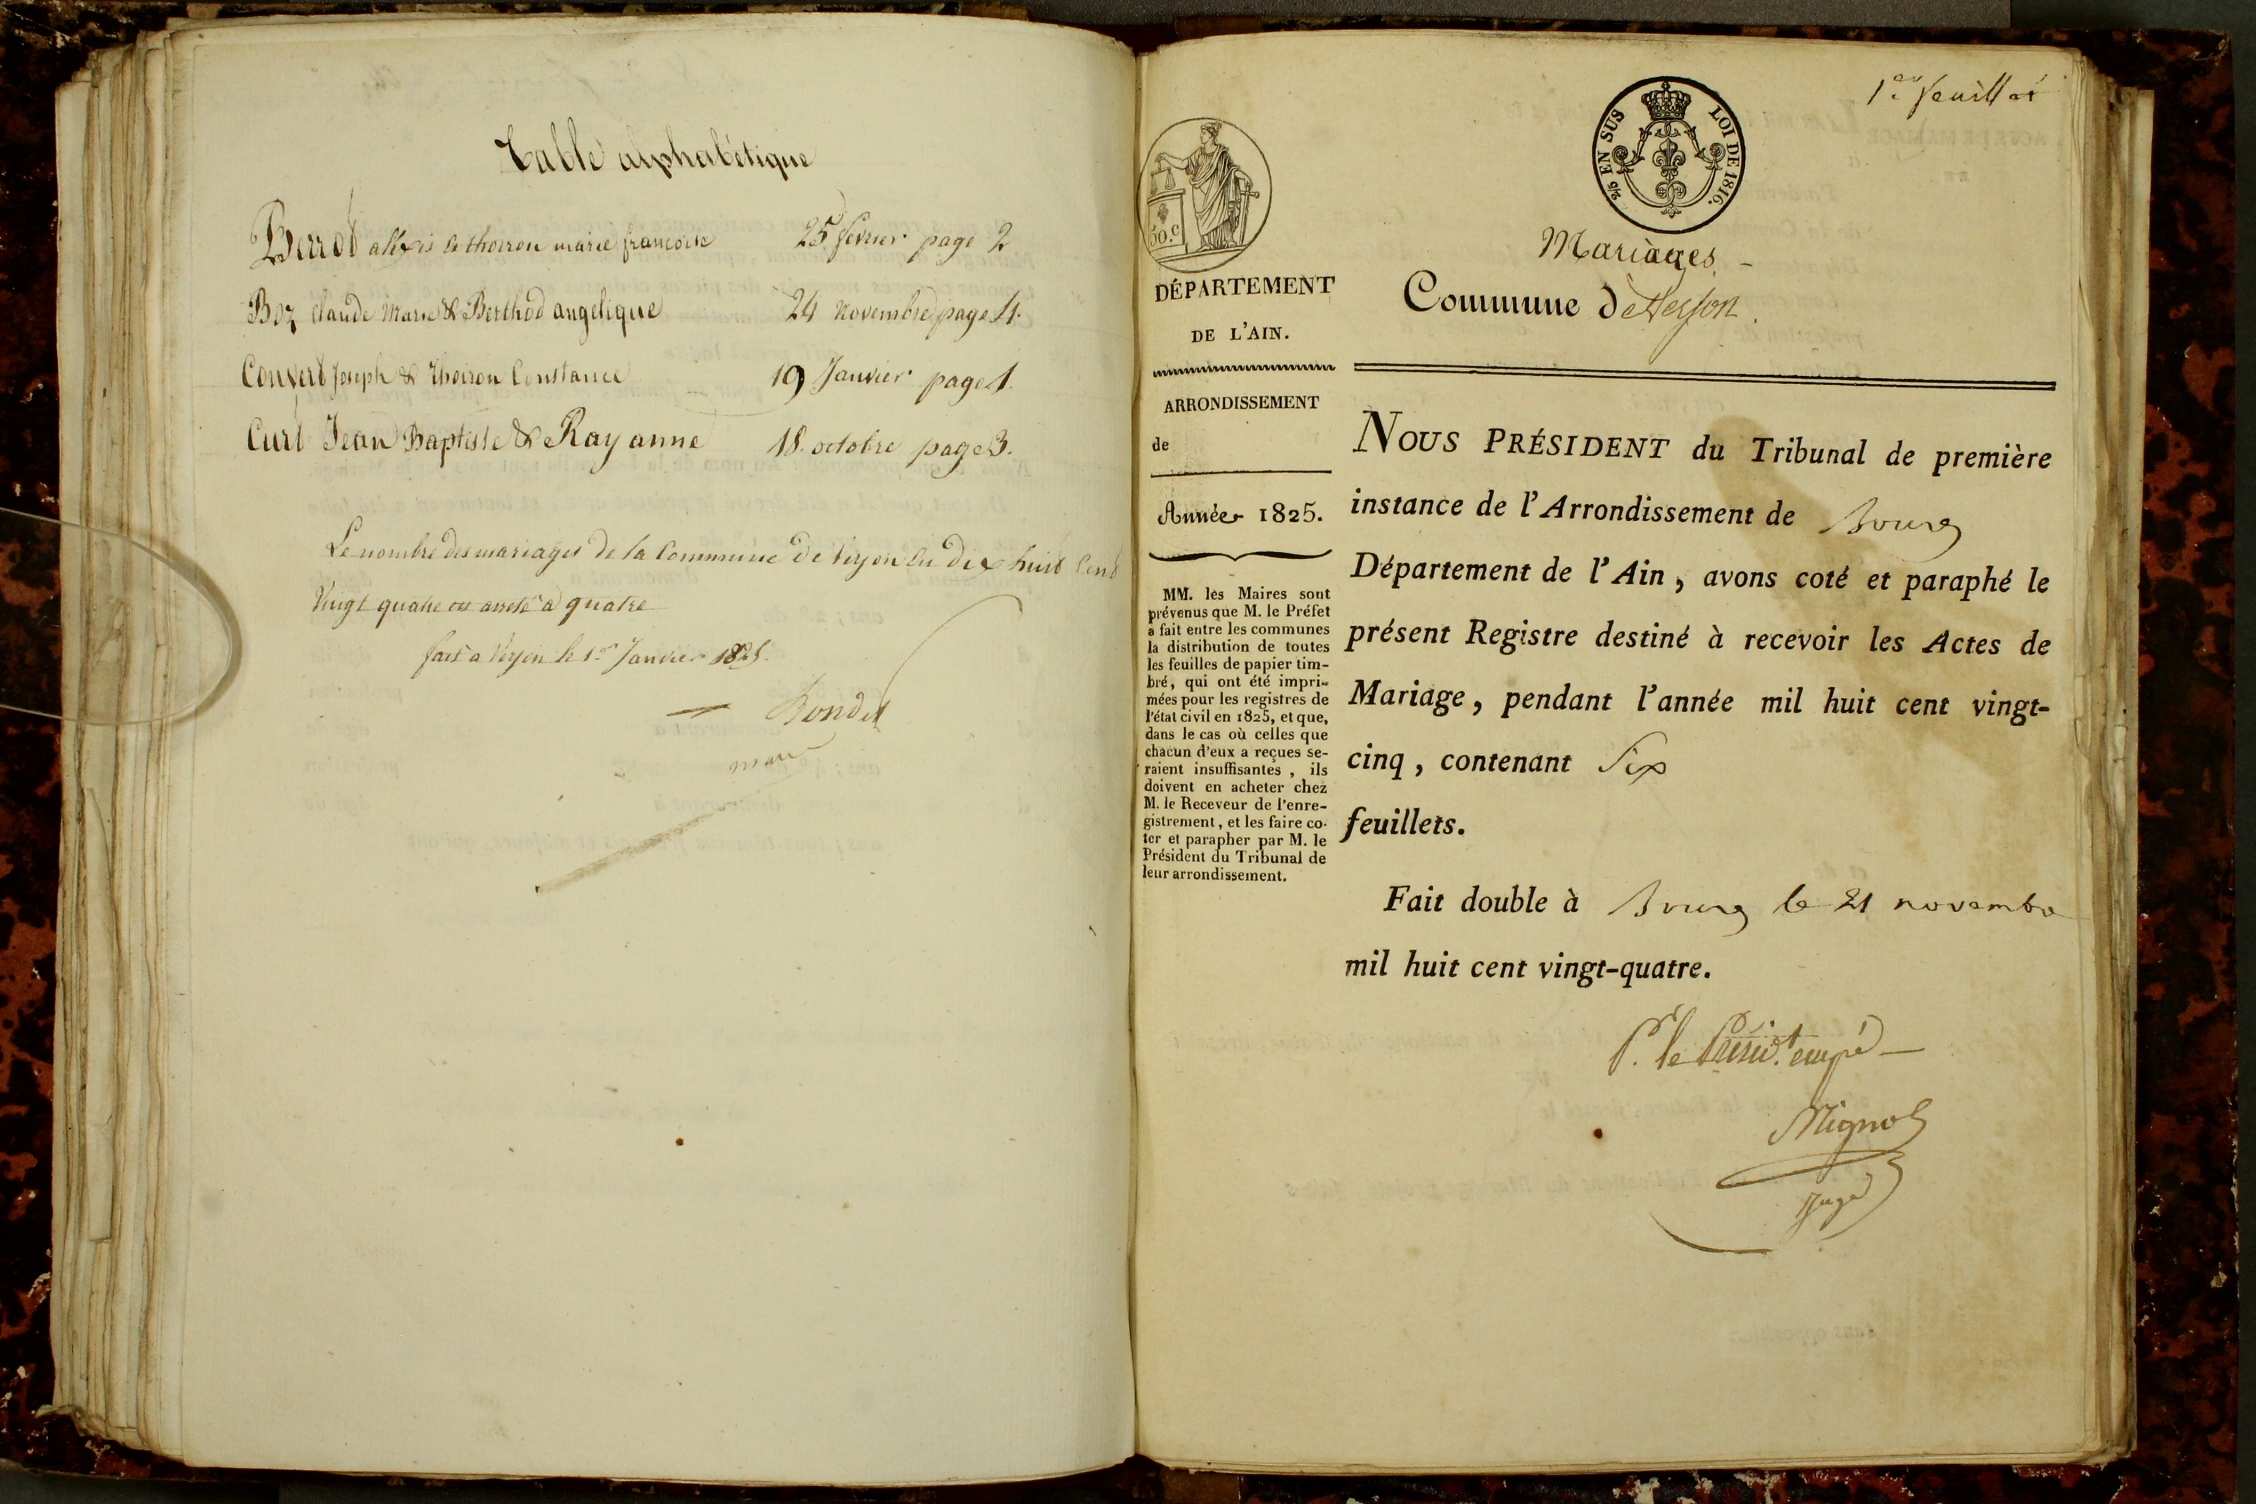 Table alphabétique
alexis & thoiron marie francoise 25 fevrier page 2
Boz Claude Marie & Berthod angelique 24 Novembre page 4.
Convert Joseph & Thoiron Constance 19 Janvier page 1.
Curt Jean Baptiste & Ray anne 18. octobre page 3.
Le nombre des mariages de la Commune de Verjon en dix huit Cent
Vingt quatre est arreté a quatre
fait a Verjon le 1er Janvier 1825.
maire
1er feuillet
2/5 EN SUS LOI DE 1816.
50.c
Mariages
Commune de Verjon.
DÉPARTEMENT
DE L'AIN.
ARRONDISSEMENT
de
Année 1825.
MM. les Maires sont
prévenus que M. le Préfet
a fait entre les communes
la distribution de toutes
les feuilles de papier tim-
bré, qui ont été impri-
mées pour les registres de
l'état civil en 1825, et que,
dans le cas où celles que
chacun d'eux a reçues se-
raient insuffisantes, ils
doivent en acheter chez
M. le Receveur de l'enre-
gistrement, et les faire co-
ter et parapher par M. le
Président du Tribunal de
leur arrondissement.
NOUS PRÉSIDENT du Tribunal de première
instance de l'Arrondissement de Bourg
Département de l'Ain, avons coté et paraphé le
présent Registre destiné à recevoir les Actes de
Mariage, pendant l'année mil huit cent vingt-
cinq, contenant Six
feuillets.
Fait double à Bourg le 21 novembre
mil huit cent vingt-quatre.
P. le Présid.t empé
Juge